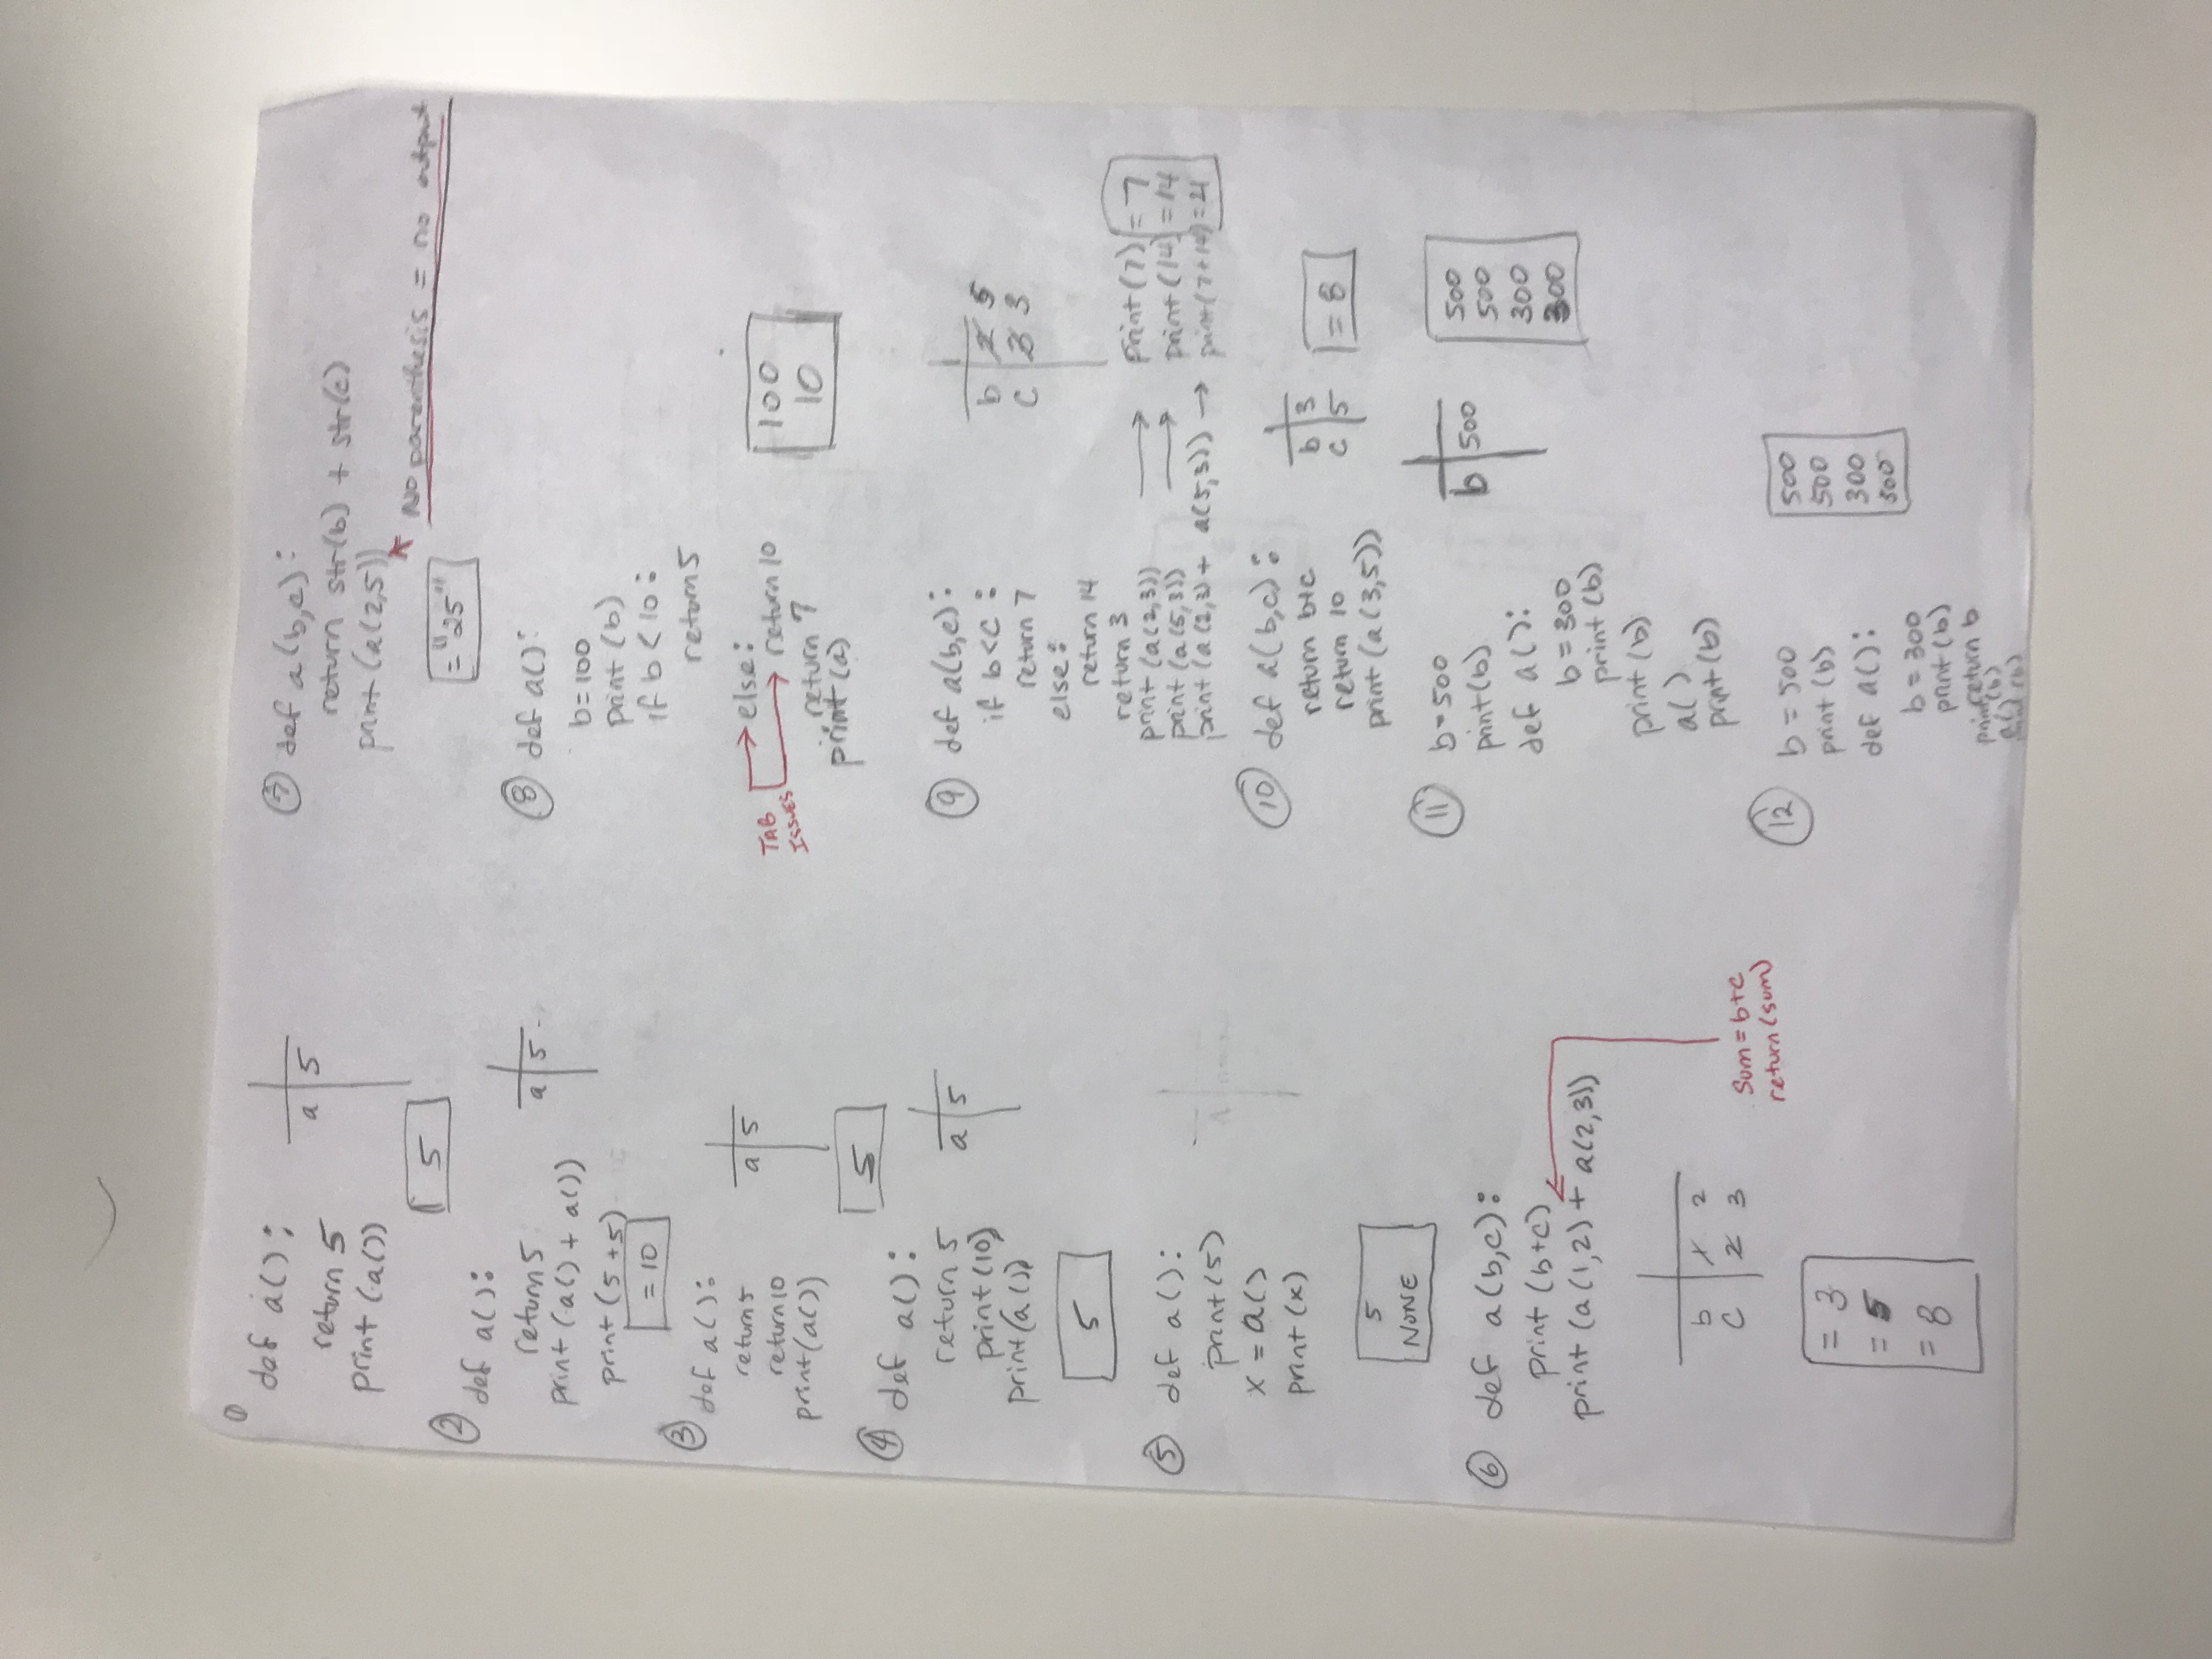 ①
def a():
return 5
print (a())
a 5
5
②
def a():
return 5
print (a() + a())
print (5 + 5)
= 10
a 5
③
def a():
return 5
return 10
print(a())
a 5
5
④
def a():
return 5
print (10)
print(a())
a 5
5
⑤
def a():
print (5)
x = a()
print (x)
5
NONE
⑥
def a (b,c):
print (b+c)
print (a(1,2) + a(2,3))
b 1 2
c 2 3
Sum = b+c
return (sum)
= 3
= 5
= 8
⑦ def a (b,c):
return str(b) + str(c)
print (a(2,5))
No parenthesis = no output
= "25"
⑧ def a():
b = 100
print (b)
if b < 10:
return 5
TAB
ISSUES
else:
return 10
return 7
print (a)
100
10
⑨ def a(b,c):
if b<c :
return 7
else:
return 14
return 3
print (a(2,3))
print (a(5,3))
print (a(2,3) + a(5,3))
b 2 5
c 3 3
print (7) = 7
print (14) = 14
print (7+14) = 21
⑩ def a(b,c):
return b+c
return 10
print (a(3,5))
b 3
c 5
= 8
⑪ b = 500
print (b)
def a():
b = 300
print (b)
print (b)
a()
print (b)
b 500
500
500
300
300
⑫ b = 500
print (b)
def a():
b = 300
print (b)
return b
print (b)
a()
print (b)
500
500
300
500